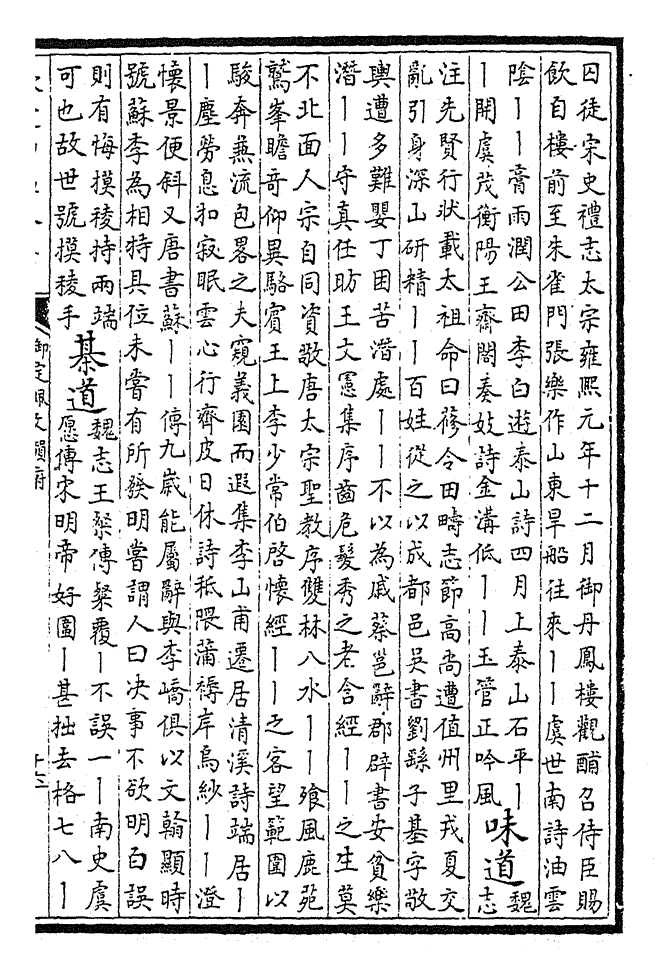 囚徒宋史禮志太宗雍熙元年十二月御丹鳳樓觀酺召侍臣賜
飲自樓前至朱雀門張樂作山東旱船往來丨丨虞世南詩油雲
陰丨丨膏雨潤公田李白遊泰山詩四月上泰山石平丨
丨開虞茂衡陽王齋閤奏妓詩金溝低丨丨玉管正吟風
味道
魏
志
注先賢行狀載太祖命曰蓚令田疇志節高尚遭值州里戎夏交
亂引身深山研精丨丨百姓從之以成都邑吳書劉繇子基字敬
輿遭多難嬰丁困苦潛處丨丨不以為戚蔡邕辭郡辟書安貧樂
潛丨丨守真任昉王文憲集序齒危髮秀之老含經丨丨之生莫
不北面人宗自同資敬唐太宗聖教序雙林八水丨丨飱風鹿苑
鷲峯瞻奇仰異駱賓王上李少常伯啓懷經丨丨之客望範圍以
駿奔蕪流包畧之夫窺義園而遐集李山甫遷居清溪詩端居丨
丨塵勞息扣寂眠雲心行齊皮日休詩秪隈蒲褥岸烏紗丨丨澄
懷景便斜又唐書蘇丨丨傳九歲能屬辭與李嶠俱以文翰顯時
號蘇李為相特具位未嘗有所發明嘗謂人曰決事不欲明白誤
則有悔摸稜持兩端
可也故世號摸稜手
綦道
魏志王粲傳粲覆丨不誤一丨南史虞
愿傳宋明帝好圍丨甚拙去格七八丨
御定佩文韻府